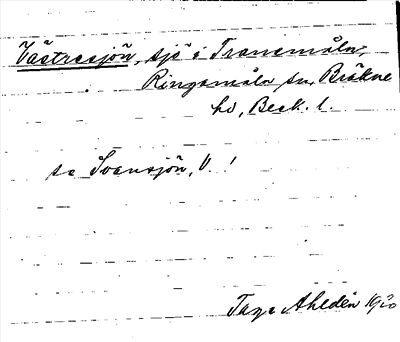 Västresjön, sjö i Tranemåla,
Ringamåla sn, Bräkne
hd, Blek. l.
se Svansjön, V. !
Tage Ahldén 1920